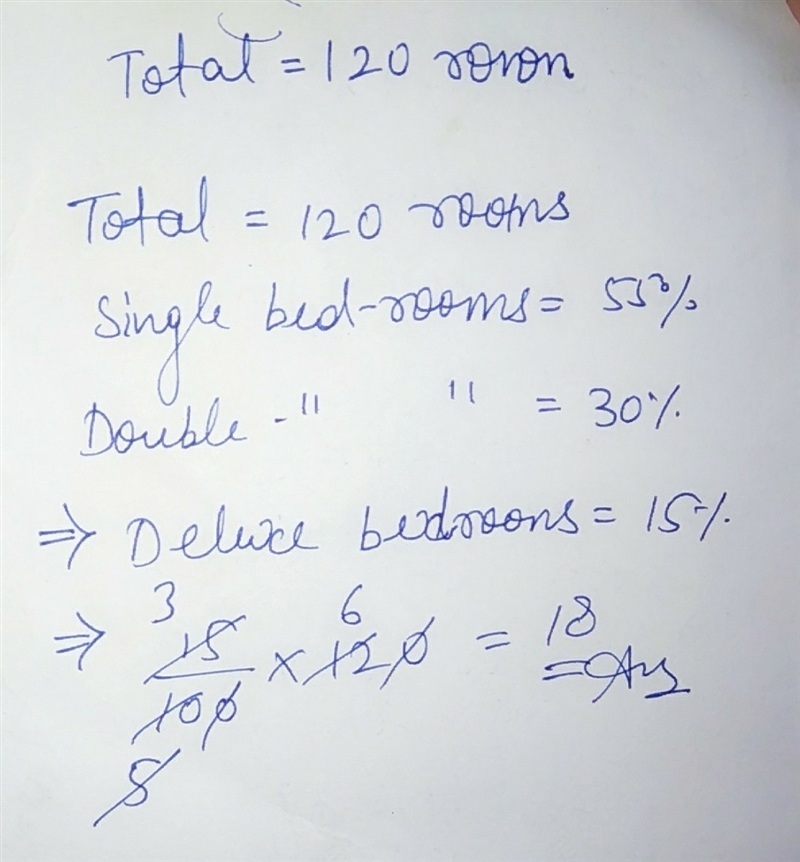 Total = 120 room
Total = 120 rooms
Single bed-rooms = 55%
Double -" " = 30%.
⇒ Deluxe bedrooms = 15%.
3 6
⇒ 15/100 × 120 = 18
= Ans
5